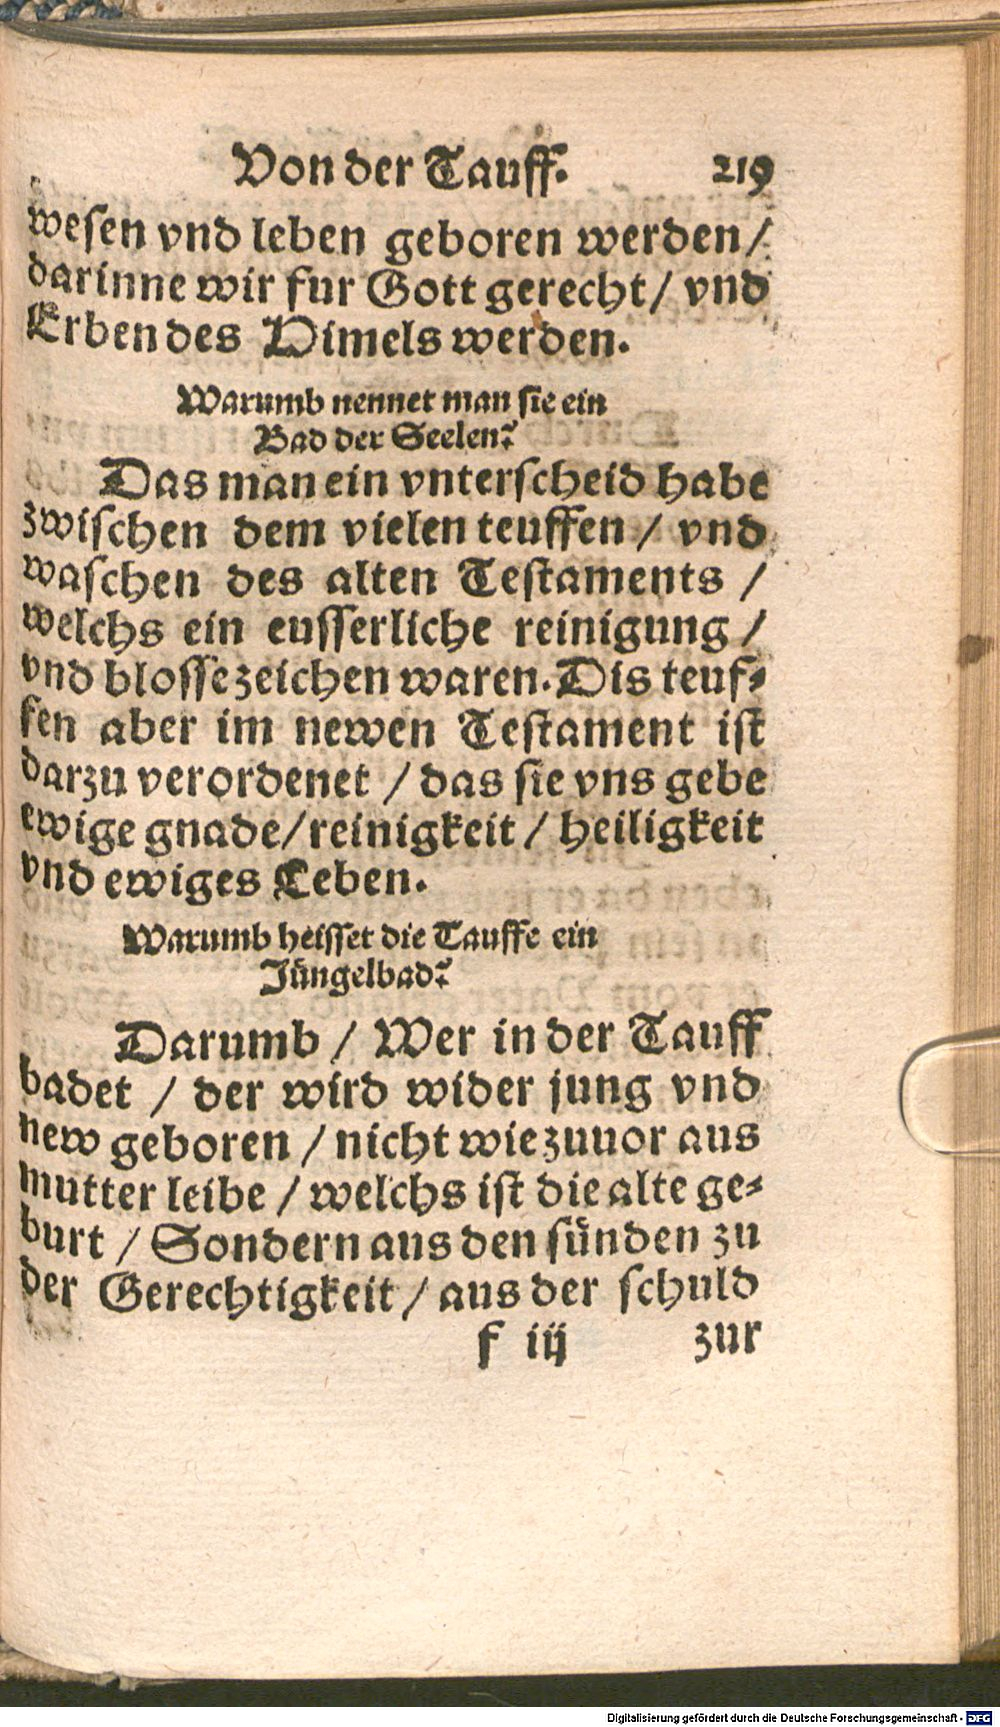 Von der Tauff. 219
wesen vnd leben geboren werden/
darinne wir fur Gott gerecht/ vnd
Erben des Himels werden.
Warumb nennet man sie ein
Bad der Seelen?
Das man ein vnterscheid habe
zwischen dem vielen teuffen / vnd
waschen des alten Testaments /
welchs ein eusserliche reinigung /
vnd blosse zeichen waren. Dis teuf-
fen aber im newen Testament ist
darzu verordenet / das sie vns gebe
ewige gnade/ reinigkeit / heiligkeit
vnd ewiges Leben.
Warumb heisset die Tauffe ein
Jüngelbad?
Darumb / Wer in der Tauff
badet / der wird wider jung vnd
new geboren / nicht wie zuuor aus
mutter leibe / welchs ist die alte ge-
burt / Sondern aus den sünden zu
der Gerechtigkeit / aus der schuld
f iij zur
Digitalisierung gefördert durch die Deutsche Forschungsgemeinschaft - DFG